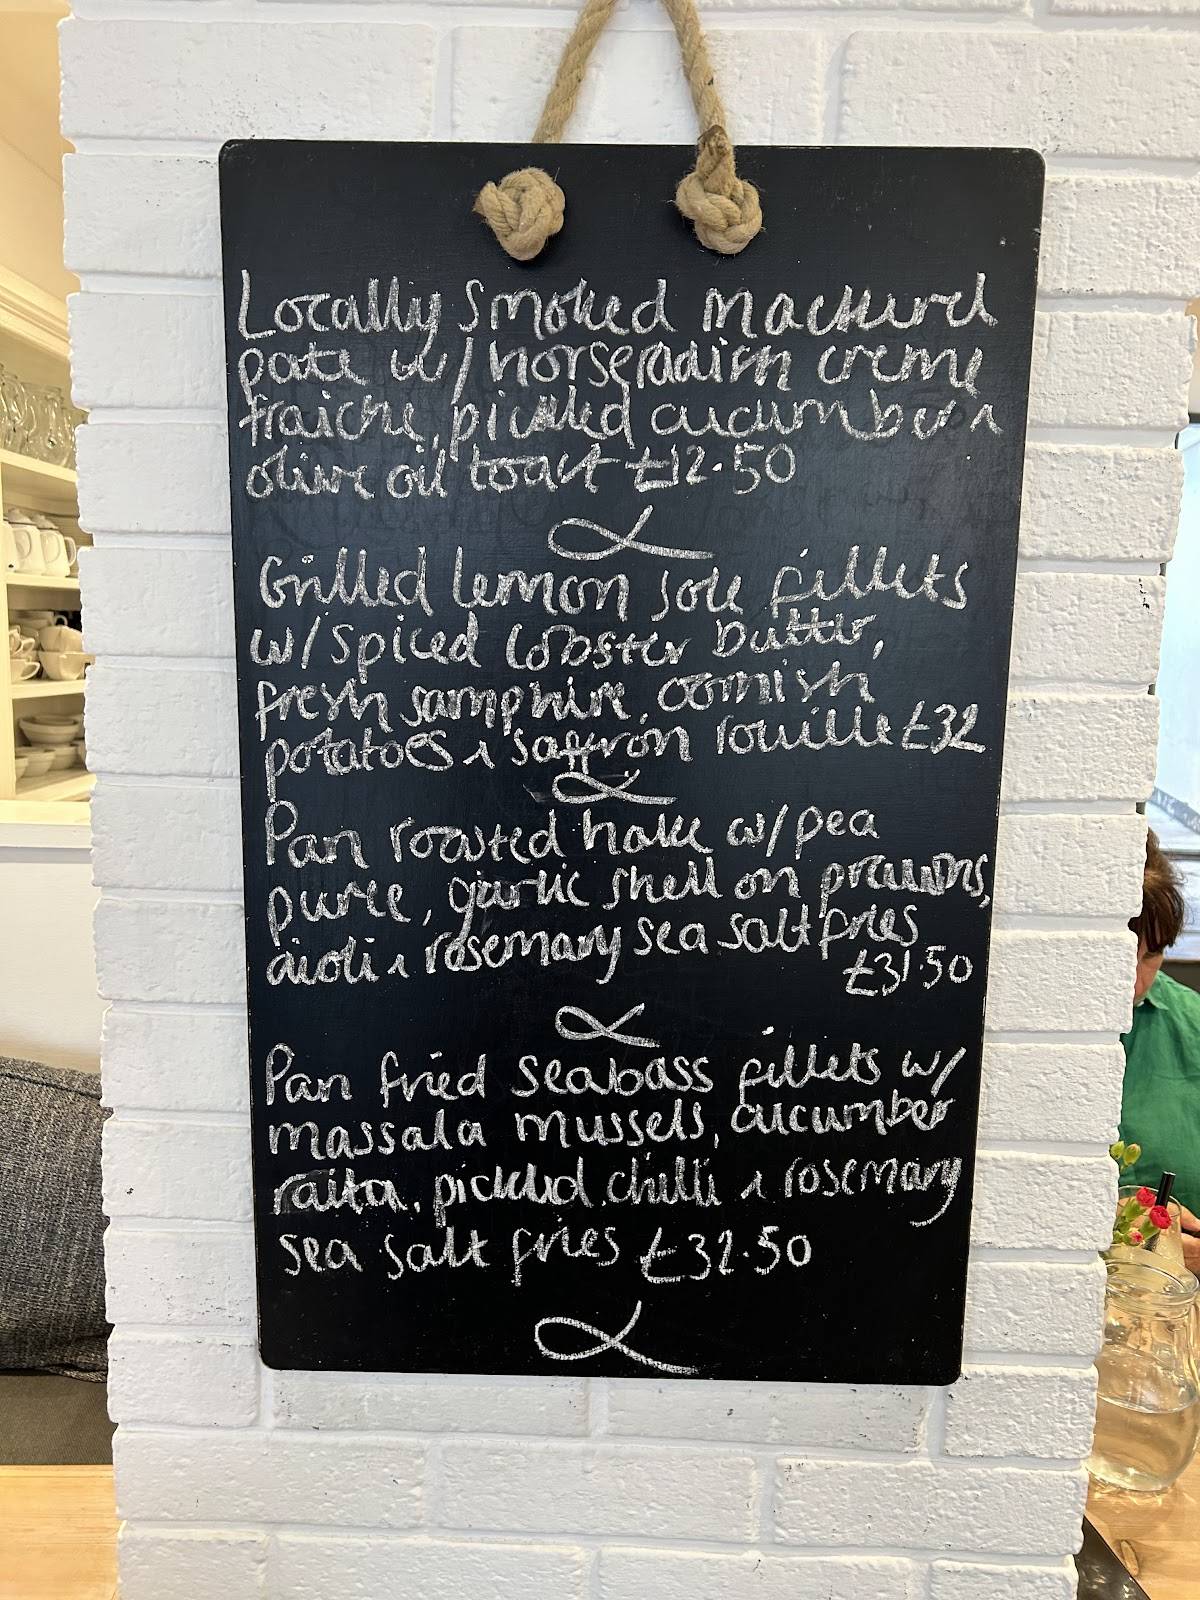 Locally smoked mackerel
pate w/ horseradish creme
fraiche, pickled cucumber &
olive oil toast £12.50
Grilled lemon sole fillets
w/ spiced lobster butter,
fresh samphire, cornish
potatoes & saffron rouille £32
Pan roasted hake w/ pea
puree, garlic shell on prawns,
aioli & rosemary sea salt fries
£31.50
Pan fried seabass fillets w/
massala mussels, cucumber
raita, pickled chilli & rosemary
sea salt fries £32.50